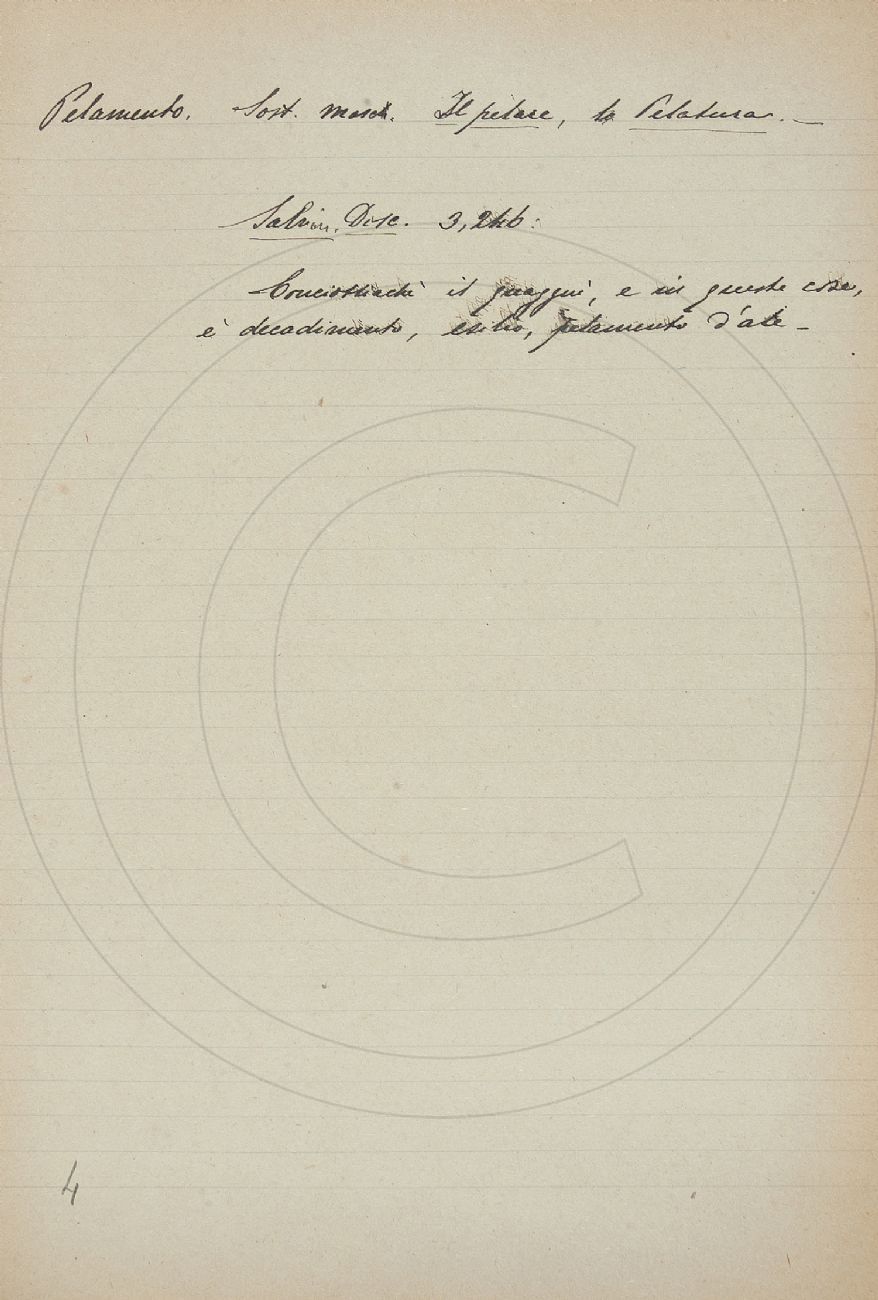 Pelamento. Sost. masch. Il pelare, la Pelatura. —
Salvin. Disc. 3, 246:
Conciossiachè il quaggiù, e in queste cose,
è decadimento, esilio, pelamento d'ale —
4